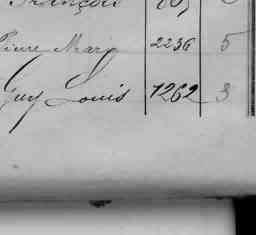 François
Pierre Marie 2236 5
Guy Louis 1262 3